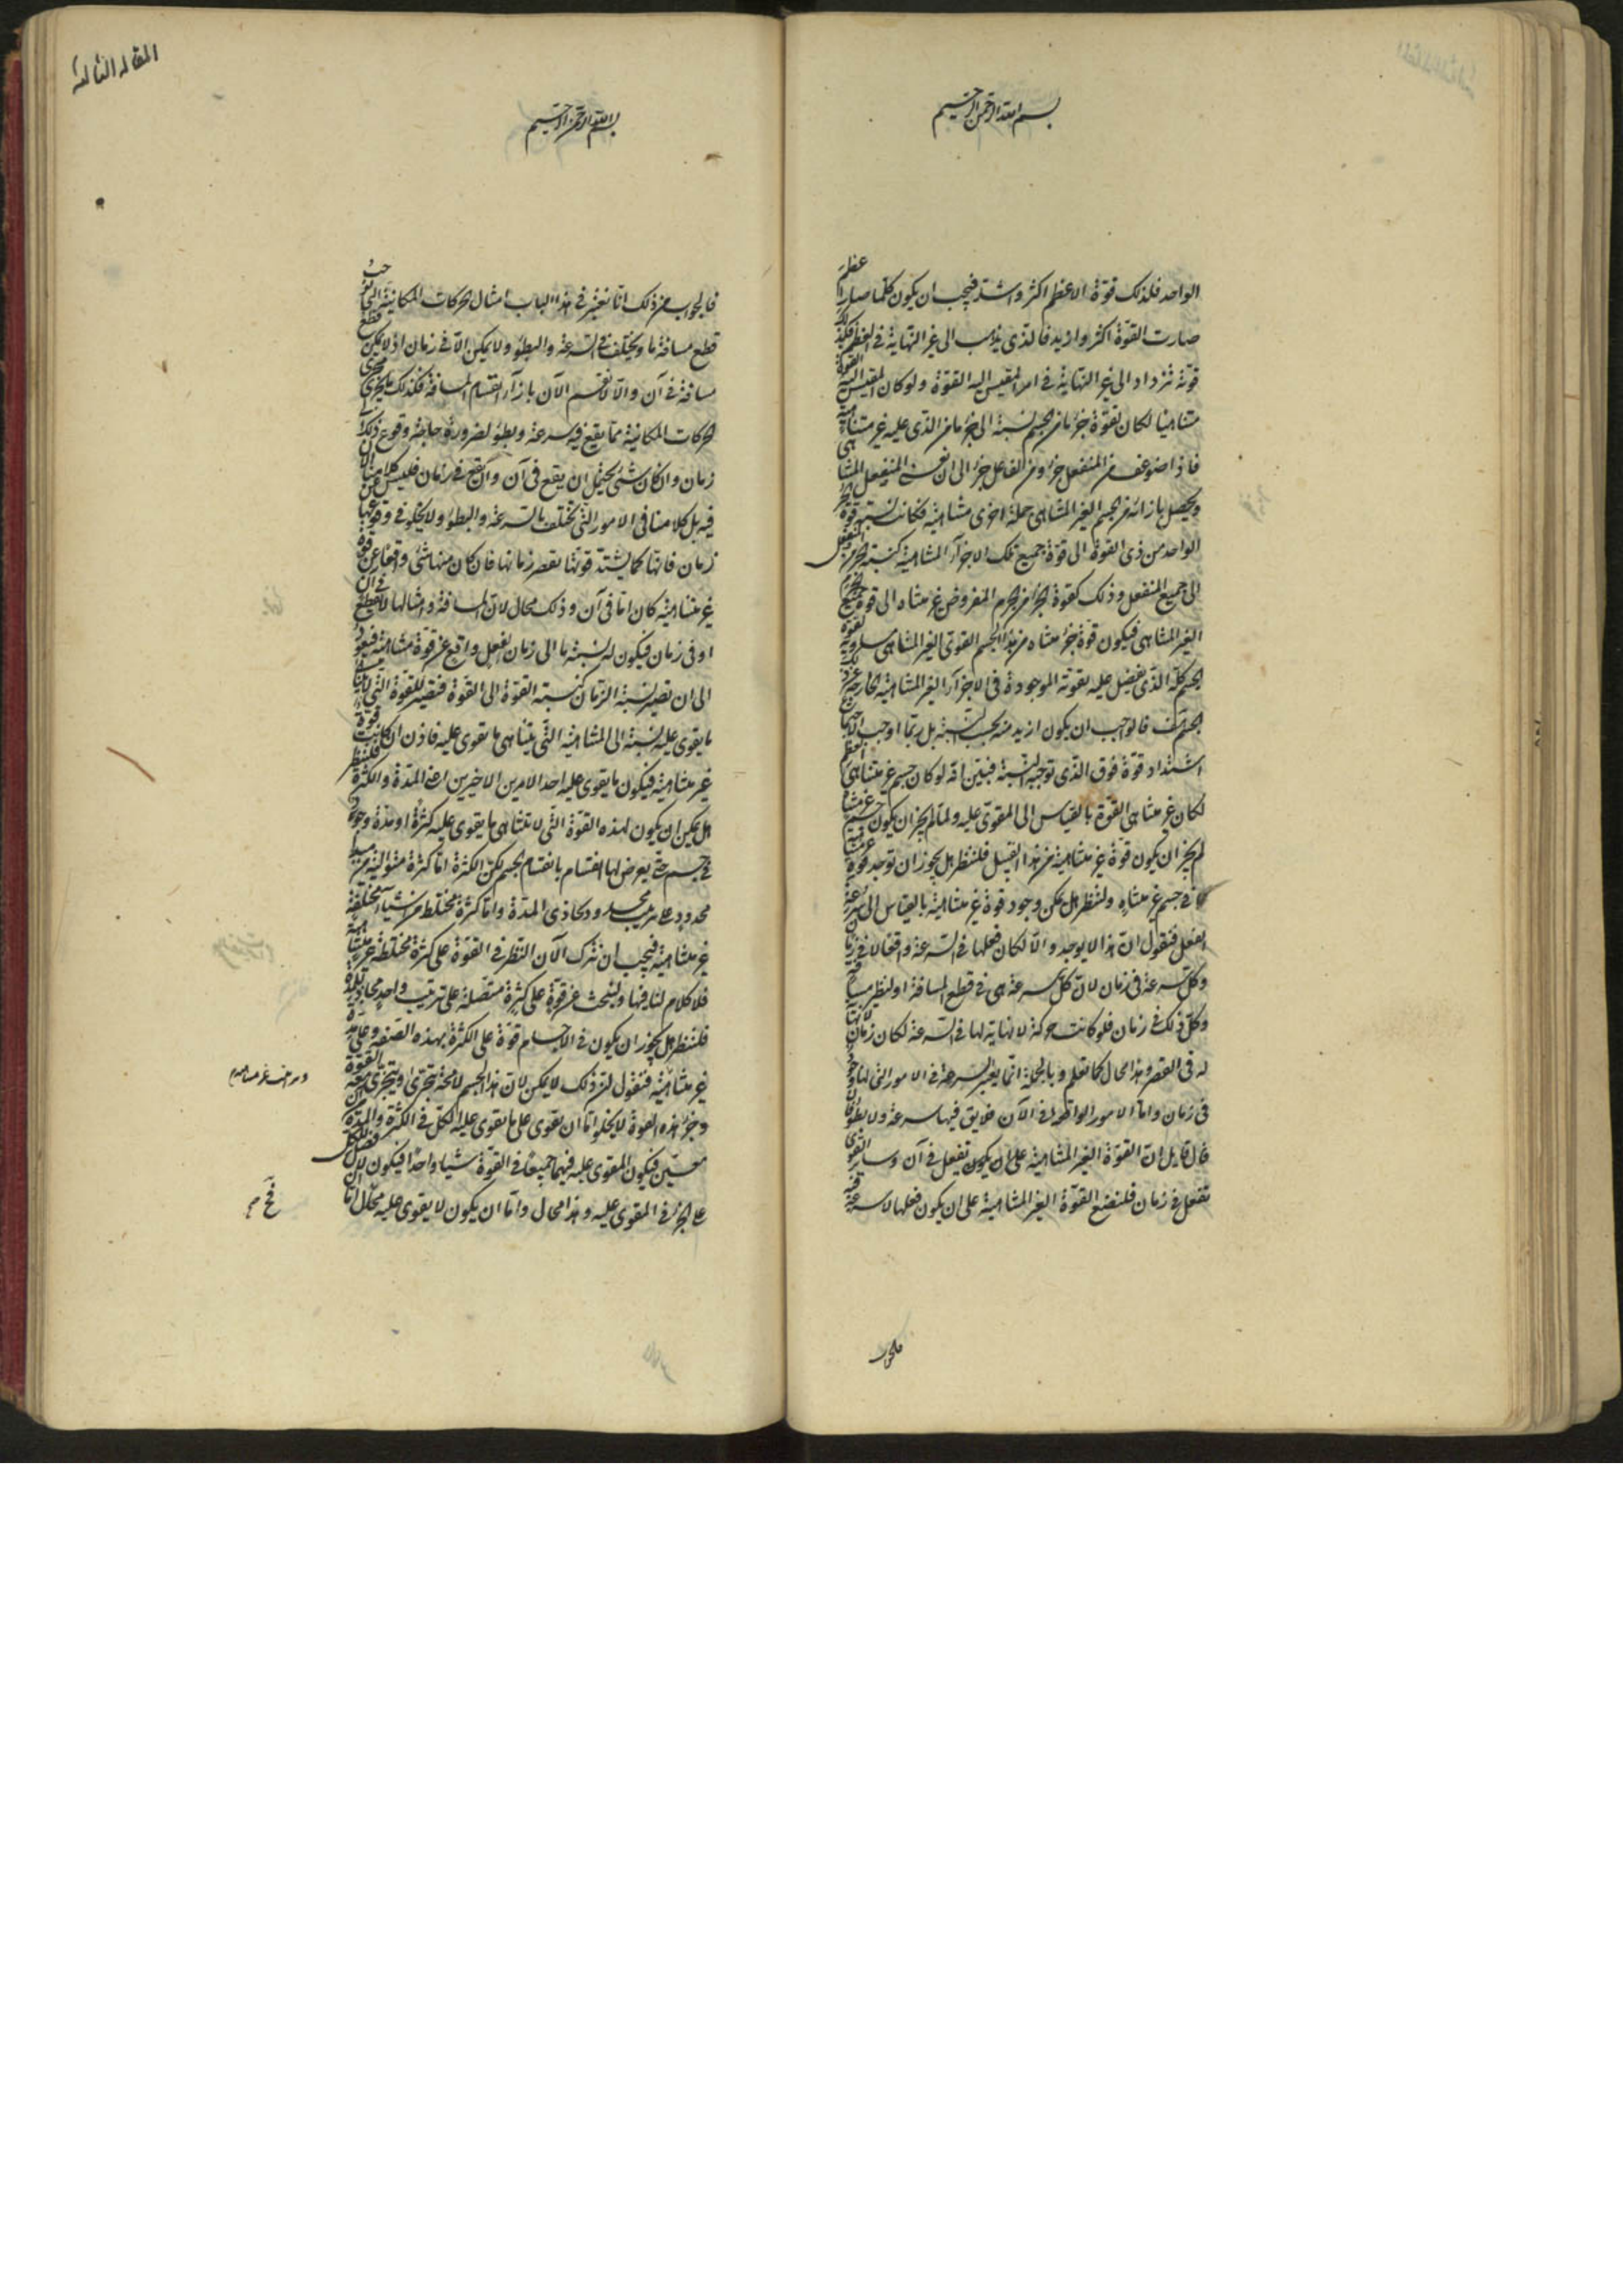 بسم الله الرحمن الرحيم
الواحد فلذلك قوة الاعظم اكثر واشد فيجب ان يكون كلما صار اعظم
صارت القوة اكثر وازيد فالذى يذهب الى غير النهاية فى العظم فكذلك
قوته تزداد الى غير النهاية فى امر المقيس اليه القوة ولو كان المقيس اليه القوة
متناهيا لكان لقوة جزء ما من الجسم نسبة الى جزء ما من الذى عليه غير متناهية
فاذا ضوعف من المنفعل جزء ومن الفاعل جزء الى ان يفنى المنفعل المتناهى
ويحصل بازائه من الجسم الغير المتناهى جملة اخرى متناهية فكانت نسبة قوة الجزء
الواحد من ذى القوة الى قوة جميع تلك الاجزاء المتناهية كنسبة الجزء المنفعل
الى جميع المنفعل وذلك كقوة الجزء من الجرم المفروض غير متناه الى قوة جميع الجرم
الغير المتناهى فيكون قوة جزء متناه من هذا الجسم القوى الغير المتناهى مساوية لقوة
الجسم كله الذى يفضل عليه بقوته الموجودة فى الاجزاء الغير المتناهية الخارجة عن ذلك
الجسم هف فالواجب ان يكون ازيد منه بحسب النسبة بل ربما اوجب الاجتماع
اشتداد قوة فوق الذى توجبه النسبة فبين انه لو كان جسم غير متناهى العظم
لكان غير متناهى القوة بالقياس الى المقوى عليه ولما لم يجز ان يكون جسم غير متناه
لم يجز ان يكون قوة غير متناهية من هذا القبيل فلننظر هل يجوز ان توجد قوة غير متناهية
فى جسم غير متناه ولننظر هل يمكن وجود قوة غير متناهية بالقياس الى سرعة
الفعل فنقول ان هذا لا يوجد والا لكان فعلها فى السرعة واقعا لا فى زمان
وكل سرعة فى زمان لان كل سرعة هى فى قطع المسافة او نظير مسافة
وكل ذلك فى زمان فلو كانت حركة لا نهاية لها فى السرعة لكان زمان لا نهاية
له فى القصر وهذا محال كما تعلم وبالجملة انما يعتبر السرعة فى الامور التى لها وجود
فى زمان واما الامور الواقعة فى الآن فلا يق فيها سرعة ولا بطؤ فان
قال قايل ان القوة الغير المتناهية على ان يكون تفعل فى آن وسائر القوى
تفعل فى زمان فلنضع القوة الغير المتناهية على ان يكون فعلها لا سرعة فيه
فالجواب
المقالة الثالثة
بسم الله الرحمن الرحيم
فالجواب عن ذلك انا نعتبر فى هذا الباب امثال الحركات المكانية التى توجب
قطع مسافة ما ويختلف فى السرعة والبطؤ ولا يمكن الا فى زمان اذ لا يمكن قطع
مسافة فى آن والا لانقسم الآن بازاء انقسام المسافة فكذلك ما يجرى مجرى
الحركات المكانية مما يقع فيه سرعة وبطؤ لضرورة حاجته وقوع ذلك فى
زمان وان كان شئ يحتمل ان يقع فى آن وان يقع فى زمان فليس كلامنا الان
فيه بل كلامنا فى الامور التى تختلف بالسرعة والبطؤ ولا يخلو فى وقوعها عن
زمان فانها كما يشتد قوتها يقصر زمانها فان كان منها شئ واقعا عن قوة
غير متناهية كان اما فى آن وذلك محال لان المسافة وامثالها لا يقطع فى آن
او فى زمان فيكون له نسبة ما الى زمان لفعل واقع عن قوة متناهية فيعود
الى ان تصير نسبة الزمان كنسبة القوة الى القوة فتصير للقوة التى لا يتناهى
ما يقوى عليه نسبة الى المتناهية التى يتناهى ما تقوى عليه فاذن ان كانت قوة
غير متناهية فيكون ما يقوى عليه احد الامرين الاخيرين اعنى المدة والكثرة فلننظر
هل يمكن ان يكون لهذه القوة التى لا تتناهى ما يقوى عليه كثرة او مدة وجود
فى جسم حتى يعرض لها انقسام بانقسام الجسم لكن الكثرة اما كثرة متوالية من مبدأ
محدود على ترتيب محدود وتحاذى المدة واما كثرة مختلطة من اشياء مختلفة
غير متناهية فيجب ان نترك الآن النظر فى القوة على كثرة مختلطة غير متناهية
فلا كلام لنا فيها ولنبحث عن قوة على كثرة متصلة على ترتيب واحد محاذية للمدة
فلننظر هل يجوز ان يكون فى الاجسام قوة على الكثرة بهذه الصفة وعلى مدة
غير متناهية فنقول ان ذلك لا يمكن لان هذا الجسم لا محة يتجزى ويتجزى معه القوة
وجزء هذه القوة لا يخلوا اما ان تقوى على ما يقوى عليه الكل فى الكثرة والمدة من آن
معين فيكون المقوى عليه فيهما جميعا فى القوة شيئا واحدا فيكون لا فضل للكل
على الجزء فى المقوى عليه وهذا محال واما ان يكون لا يقوى عليه محال اما ان